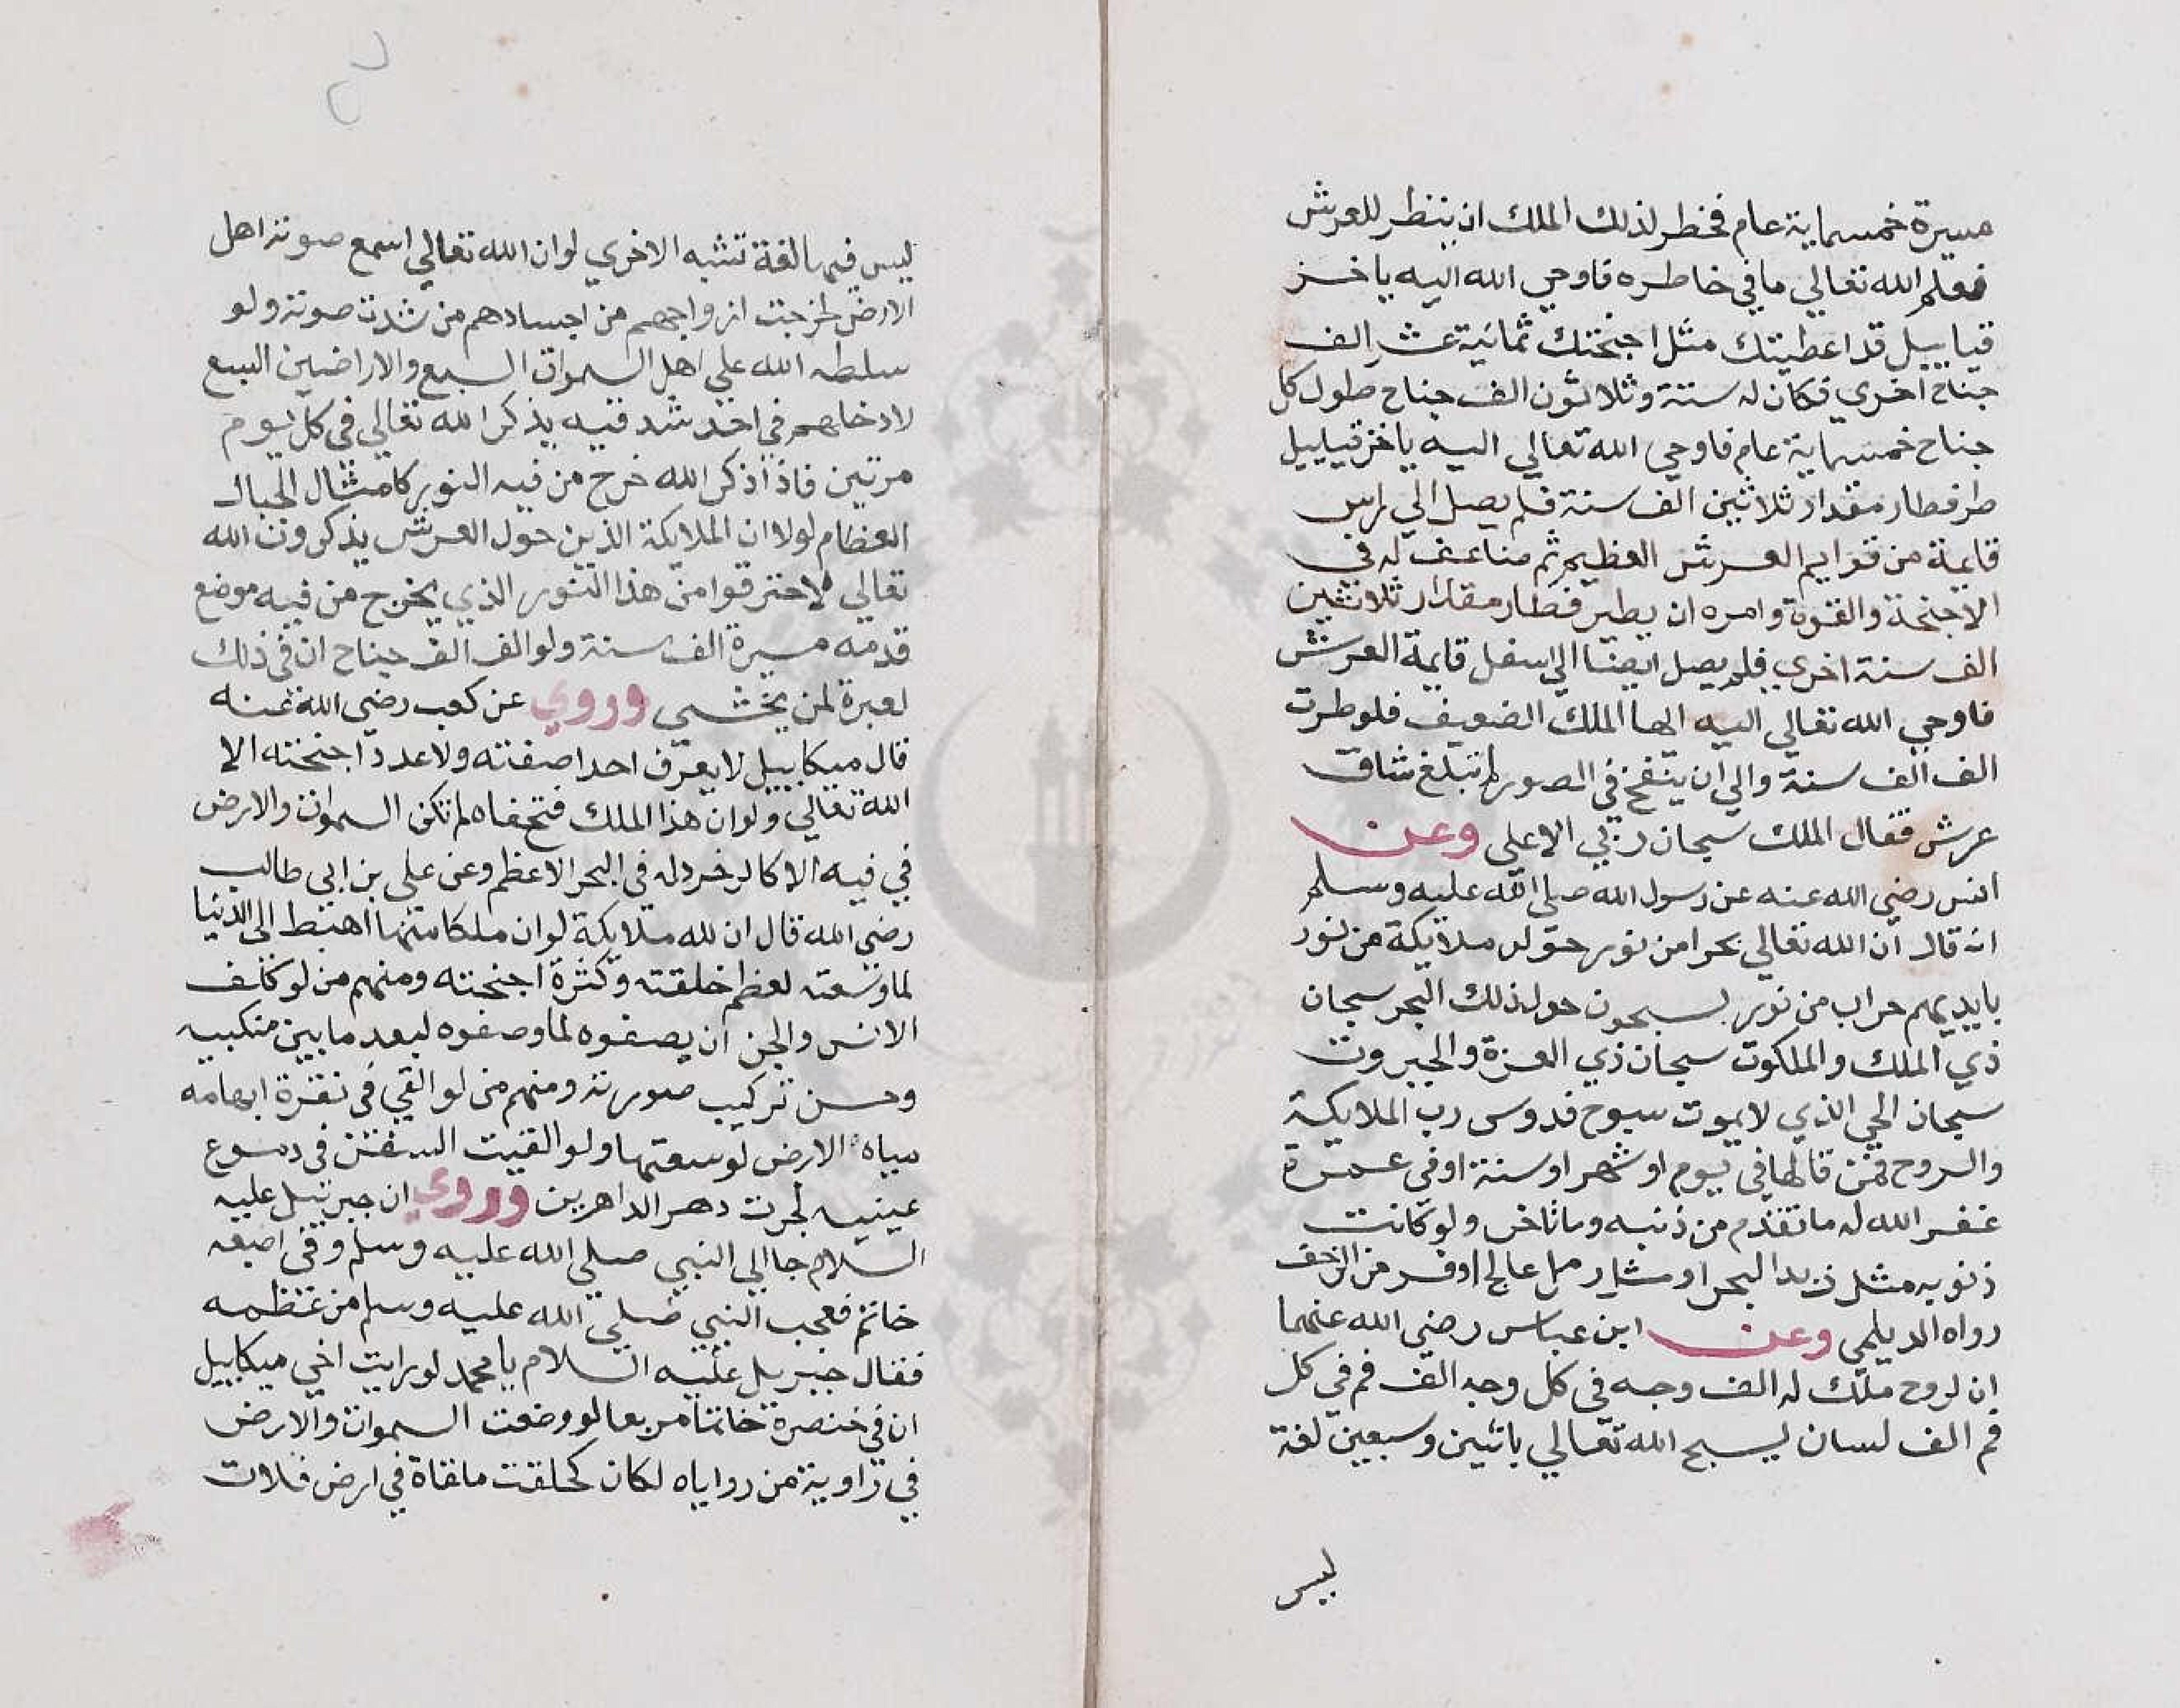 مسيرة خمسماية عام فخطر لذلك الملك ان ينظر للعرش
فعلم الله تعالي ما في خاطره فاوحي الله اليه يا خز
قياييل قد اعطيتك مثل اجنحتك ثمانية عشر الف
جناح اخري فكان له ستة وثلاثون الف جناح طول كل
جناح خمسماية عام فاوحي الله تعالي اليه يا خزقياييل
طر فطار مقدار ثلاثين الف سنة فلم يصل الي راس
قايمة من قوايم العرش العظيم ثم ضاعف له في
الاجنحة والقوة وامره ان يطير فطار مقدار ثلاثين
الف سنة اخري فلم يصل ايضا الي اسفل قايمة العرش
فاوحي الله تعالي اليه ايها الملك الضعيف فلو طرت
الف الف سنة والي ان ينفخ في الصور لم تبلغ شاق
عرش فقال الملك سبحان ربي الاعلي وعن
انس رضي الله عنه عن رسول الله صلي الله عليه وسلم
انه قال ان الله تعالي بحرا من نور حوله ملايكة من نور
بايديهم حراب من نور يسبحون حول ذلك البحر سبحان
ذي الملك والملكوت سبحان ذي العزة والجبروت
سبحان الحي الذي لا يموت سبوح قدوس رب الملايكة
والروح فمن قالها في يوم او شهر او سنة او في عمرة
غفر الله له ما تقدم من ذنبه وما تاخر ولو كانت
ذنوبه مثل زبد البحر او مثل رمل عالج او فر من الزحف
رواه الديلمي وعن ابن عباس رضي الله عنهما
ان لروح ملك له الف وجه في كل وجه الف فم في كل
فم الف لسان ليسبح الله تعالي باثنين وسبعين لغة
ليس
ليس فيها لغة تشبه الاخري لو ان الله تعالي اسمع صوته اهل
الارض لخرجت ازواجهم من اجسادهم من شدت صوته ولو
سلطه الله علي اهل السموات السبع والاراضين السبع
لادخلهم في احد شدقيه يذكر الله تعالي في كل يوم
مرتين فاذا ذكر الله خرج من فيه النور كامثال الجبال
العظام لولا ان الملايكة الذين حول العرش يذكرون الله
تعالي لاحترقوا من هذا النور الذي يخرج من فيه موضع
قدمه مسيرة الف سنة ولو الف الف جناح ان في ذلك
لعبرة لمن يخشي وروي عن كعب رضي الله عنه
قال ميكاييل لا يعرف احدا صفته ولا عدد اجنحته الا
الله تعالي ولو ان هذا الملك فتح فاه لم تكن السموات والارض
في فيه الا كالخردله في البحر الاعظم وعن علي بن ابي طالب
رضي الله قال ان لله ملايكة لو ان ملكا منها اهبط الي الدنيا
لما وسعته لعظم خلقته وكثرة اجنحته ومنهم من لو كلف
الانس والجن ان يصفوه لما وصفوه لبعد ما بين منكبيه
وحسن تركيب صورته ومنهم من لو القي في نقرة ابهامه
مياه الارض لوسعتها ولو القيت السفن في دموع
عينيه لجرت دهر الداهرين وروي ان جبرئيل عليه
السلام جا الي النبي صلي الله عليه وسلم وفي اصبعه
خاتم فعجب النبي صلي الله عليه وسلم من عظمه
فقال جبريل عليه السلام يا محمد لو رايت اخي ميكاييل
ان في خنصرة خاتما مربعا لو وضعت السموات والارض
في زاوية من رواياه لكان كحلقت ملقاة في ارض فلات